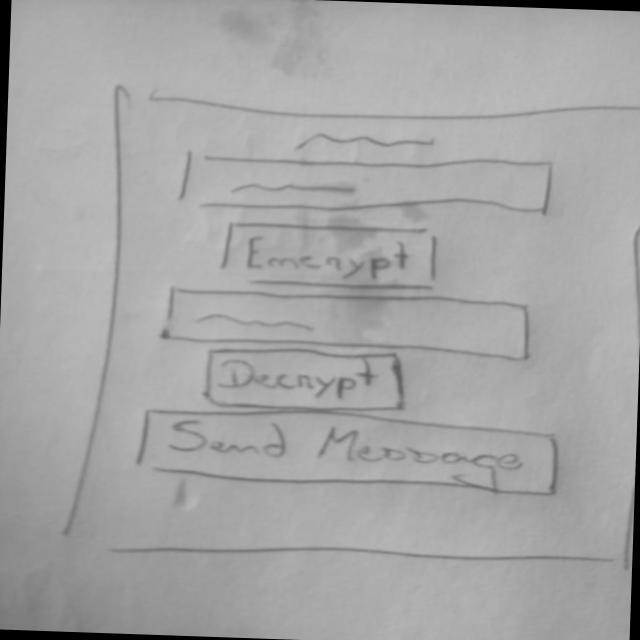 Encrypt
Decrypt
Send Message